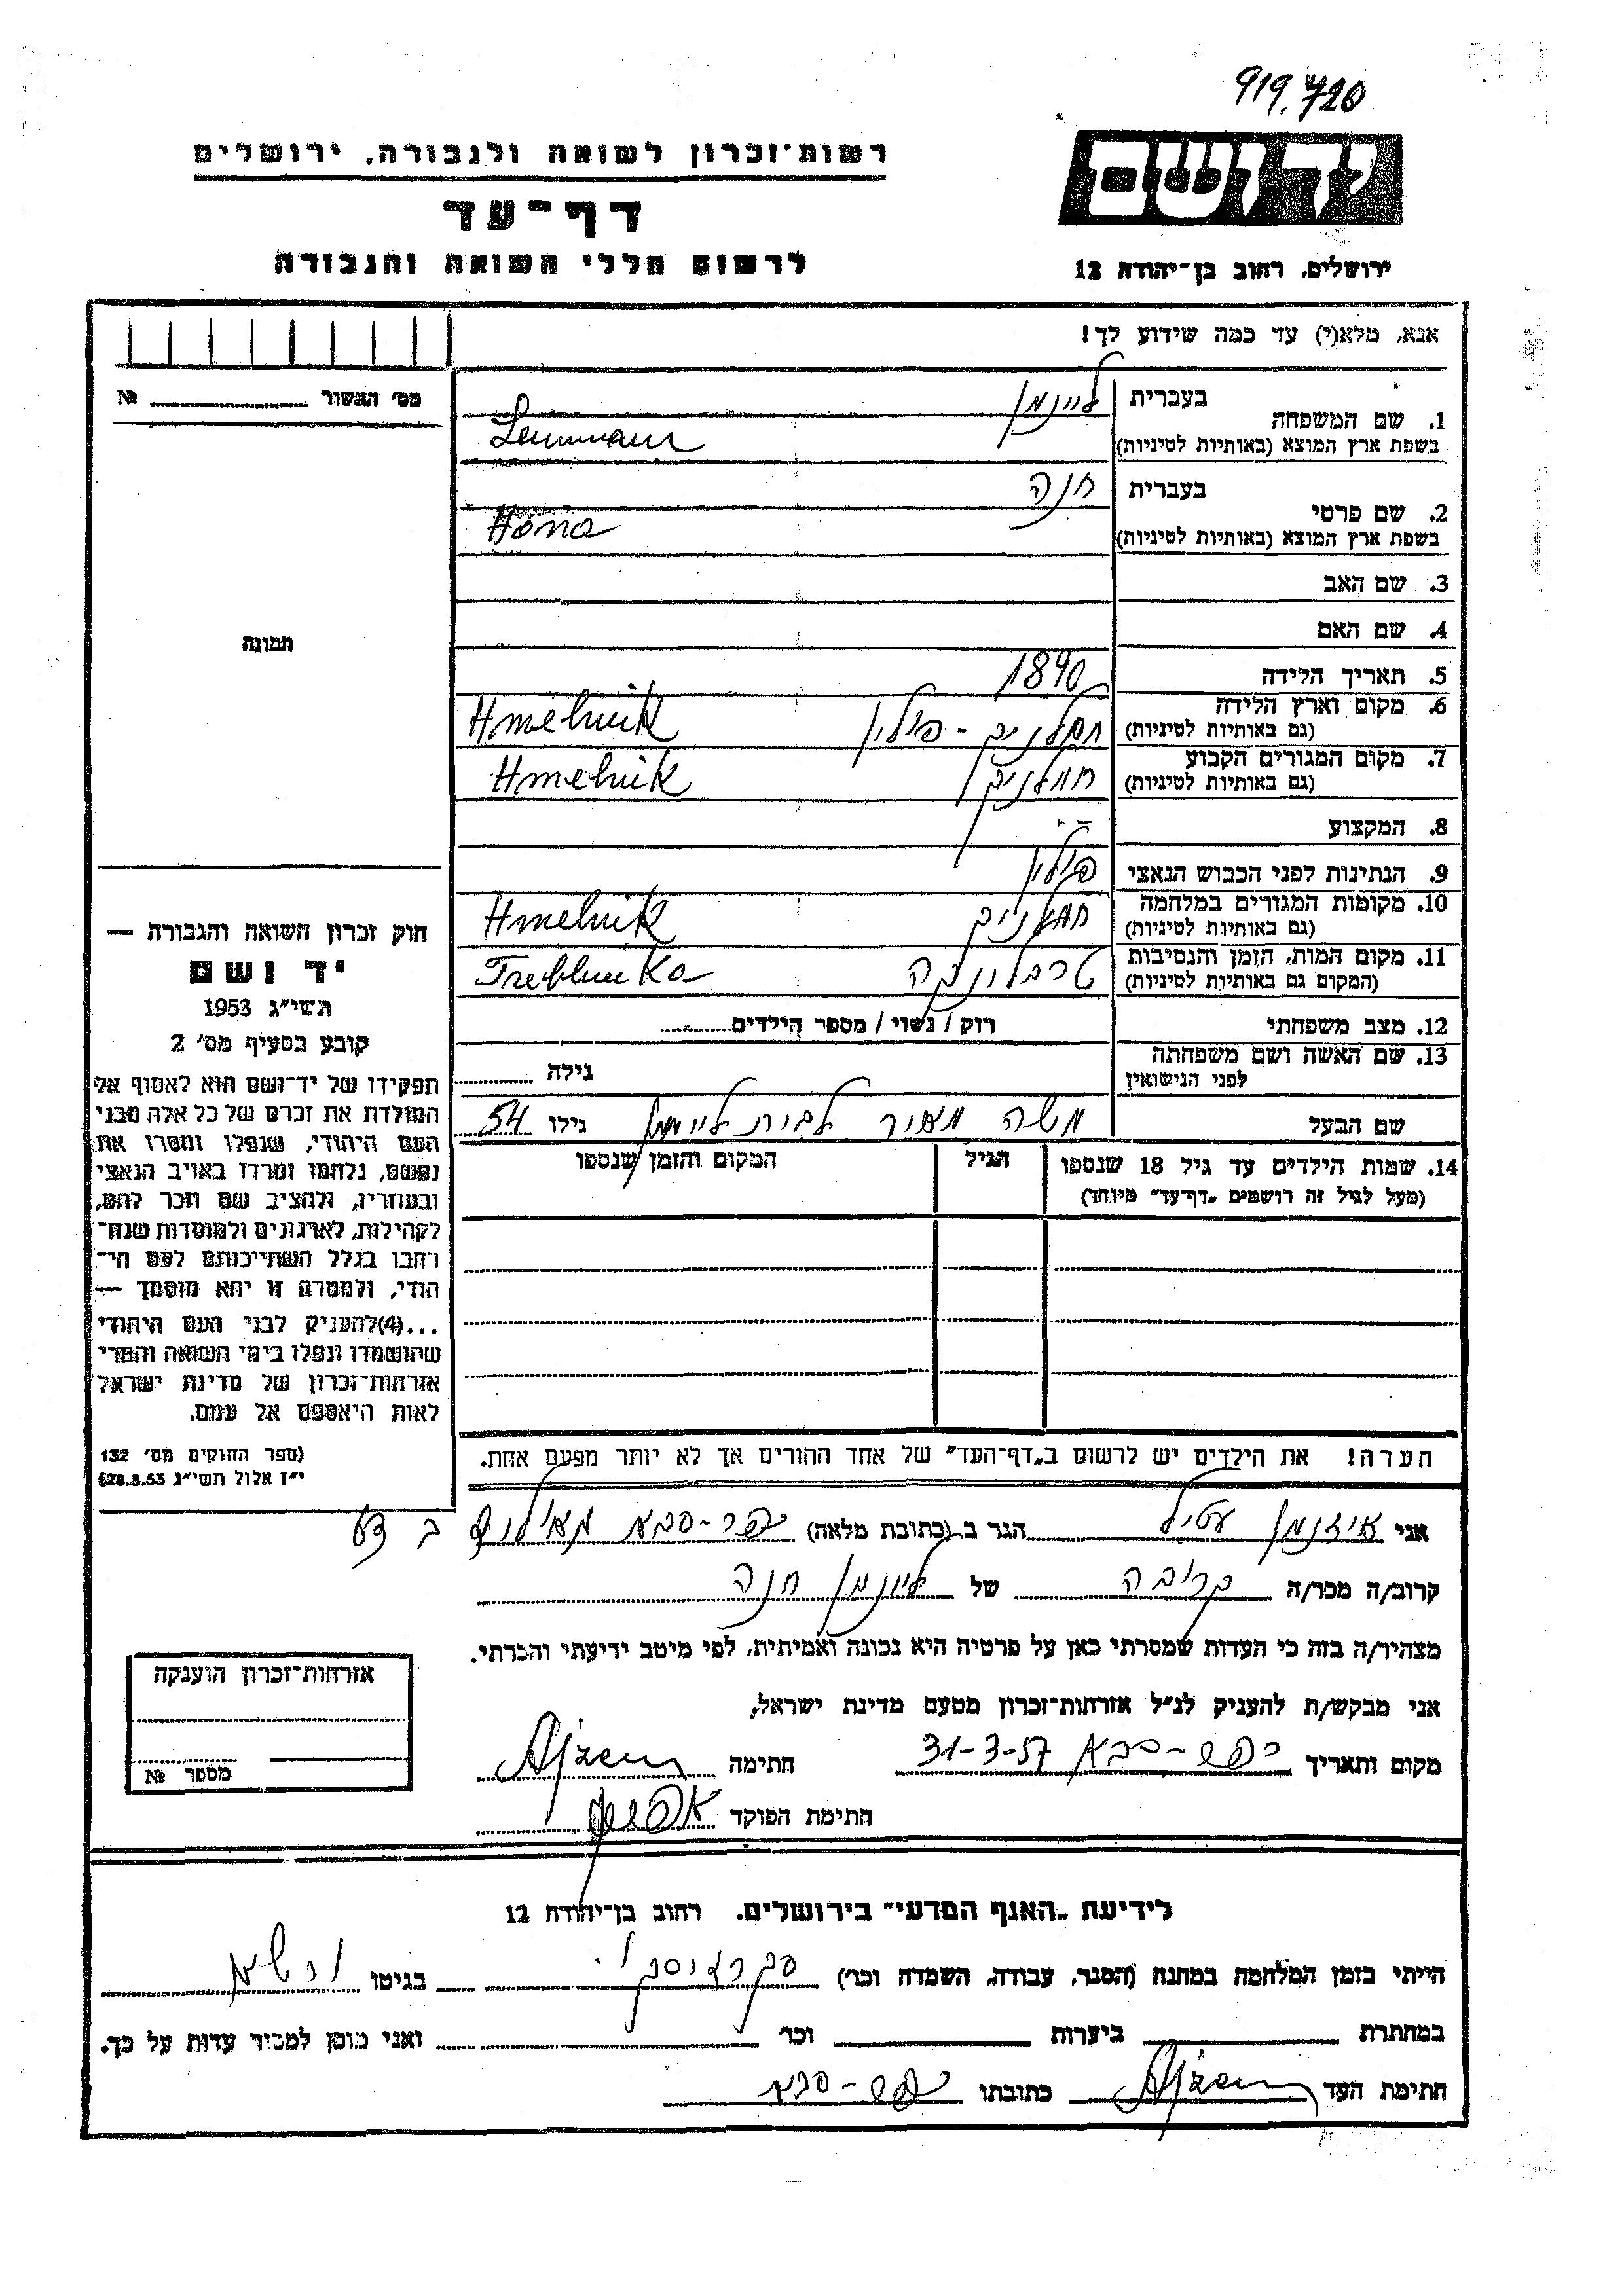 919.720
יד ושם
רשות־זכרון לשואה ולגבורה, ירושלים
דף־עד
לרשום חללי השואה והגבורה
ירושלים, רחוב בן־יהודה 12
אנא, מלא(י) עד כמה שידוע לך!
מס' האשור № 
1. שם המשפחה
בעברית
בשפת ארץ המוצא (באותיות לטיניות)
2. שם פרטי
בעברית חנה
בשפת ארץ המוצא (באותיות לטיניות) Hana
3. שם האב
4. שם האם
תמונה
5. תאריך הלידה 1890
6. מקום וארץ הלידה
(גם באותיות לטיניות) פולין Hmelnik
7. מקום המגורים הקבוע
(גם באותיות לטיניות) Hmelnik
8. המקצוע
9. הנתינות לפני הכבוש הנאצי פולין
10. מקומות המגורים במלחמה
(גם באותיות לטיניות) Hmelnik
11. מקום המות, הזמן והנסיבות
(המקום גם באותיות לטיניות) טרבלינקה Treblinka
12. מצב משפחתי רוק / נשוי / מספר הילדים
13. שם האשה ושם משפחתה
לפני הנישואין גילה
שם הבעל משה גילו 54
14. שמות הילדים עד גיל 18 שנספו
(מעל לגיל זה רושמים „דף־עד" מיוחד)
הגיל
המקום והזמן שנספו
חוק זכרון השואה והגבורה —
יד ושם
תשי"ג 1953
קובע בסעיף מס' 2
תפקידו של יד־ושם הוא לאסוף אל
המולדת את זכרם של כל אלה מבני
העם היהודי, שנפלו ומסרו את
נפשם, נלחמו ומרדו באויב הנאצי
ובעוזריו, ולהציב שם וזכר להם,
לקהילות, לארגונים ולמוסדות שנח־
רבו בגלל השתייכותם לעם הי־
הודי, ולמטרה זו יהא מוסמך —
...(4)להעניק לבני העם היהודי
שהושמדו ונפלו בימי השואה והמרי
אזרחות־זכרון של מדינת ישראל
לאות היאספם אל עמם.
(ספר החוקים מס' 132
י"ז אלול תשי"ג 28.8.53)
הערה! את הילדים יש לרשום ב„דף־העד" של אחד ההורים אך לא יותר מפעם אחת.
אני איזנמן הגר ב (כתובת מלאה) כפר-סבא
קרוב/ה מכר/ה קרובה של ליינמן חנה
מצהיר/ה בזה כי העדות שמסרתי כאן על פרטיה היא נכונה ואמיתית, לפי מיטב ידיעתי והכרתי.
אני מבקש/ת להעניק לנ"ל אזרחות־זכרון מטעם מדינת ישראל,
מקום ותאריך כפר-סבא 31-3-57 חתימה
חתימת הפוקד
אזרחות־זכרון הוענקה
מספר №
לידיעת „האגף המדעי" בירושלים. רחוב בן־יהודה 12
הייתי בזמן המלחמה במחנה (הסגר, עבודה, השמדה וכו') בגיטו ורשא
במחתרת ביערות וכו' ואני מוכן למסור עדות על כך.
חתימת העד כתובתו כפר-סבא